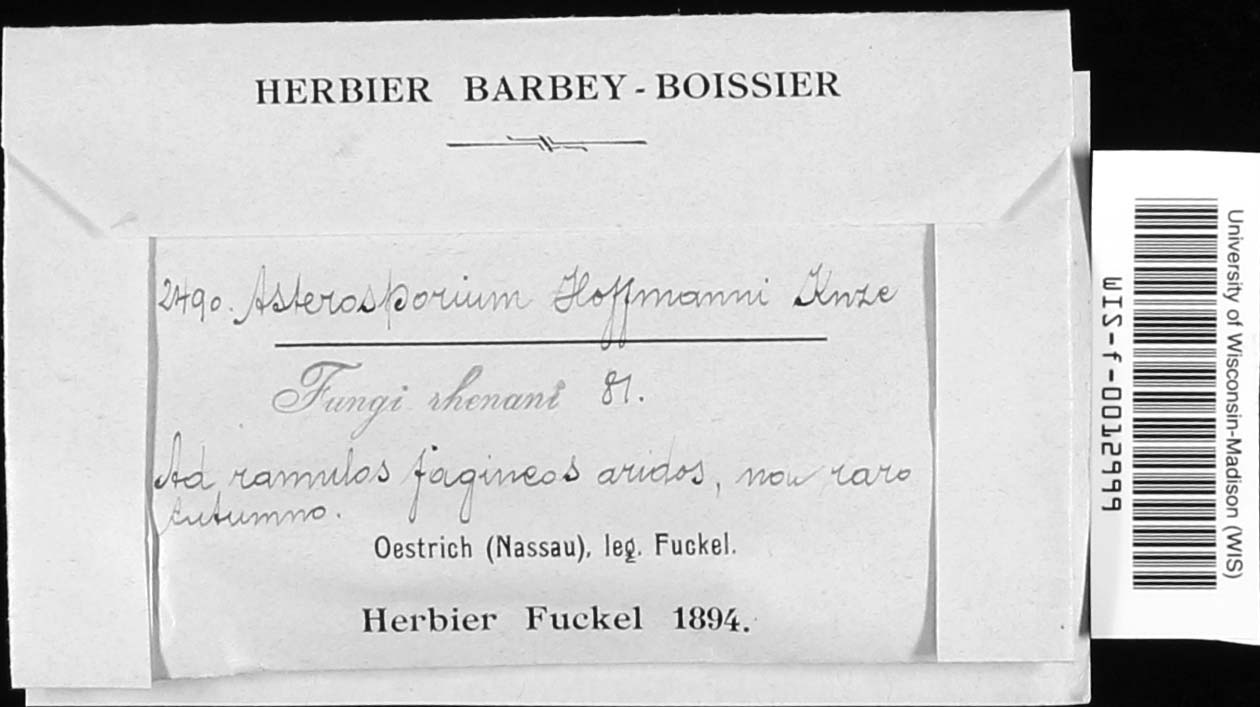 HERBIER BARBEY - BOISSIER
2490. Asterosporium Hoffmanni Knze
Fungi rhenani 81.
Ad ramulos fagineos aridos, non raro
Autumno.
Oestrich (Nassau), leg. Fuckel.
Herbier Fuckel 1894.
University of Wisconsin-Madison (WIS)
WIS-f-0012999